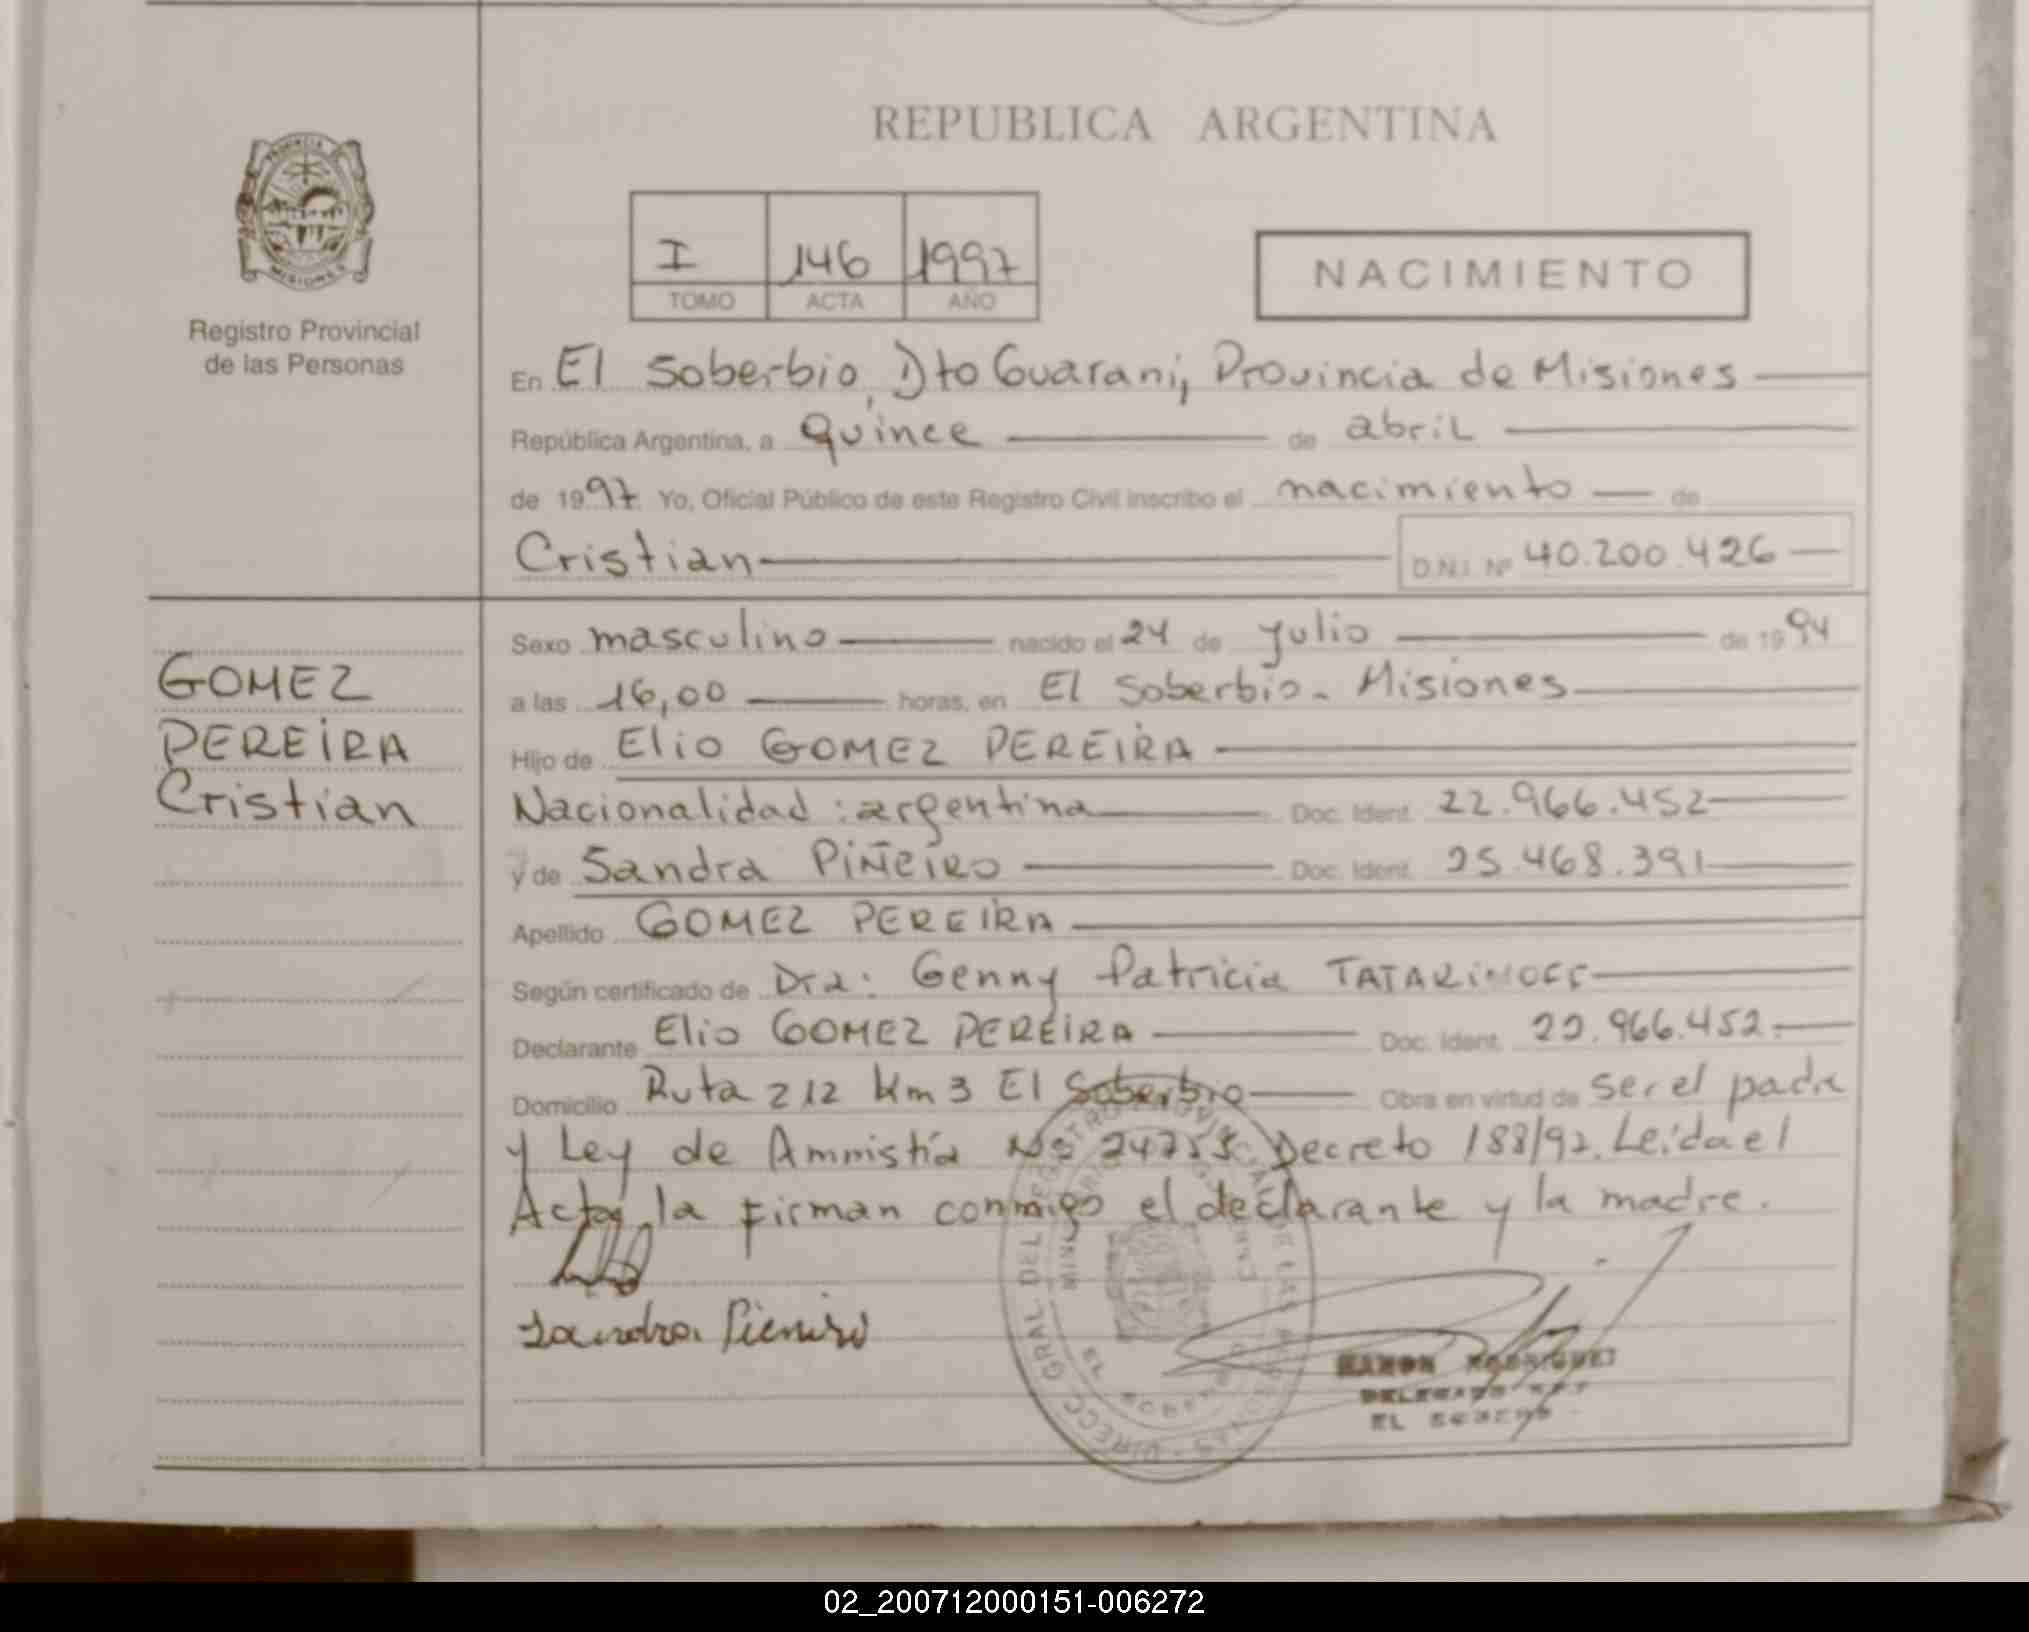 REPUBLICA ARGENTINA
PROVINCIA DE
MISIONES
Registro Provincial
de las Personas
I 146 1997
TOMO ACTA AÑO
NACIMIENTO
En El Soberbio, Dto Guarani, Provincia de Misiones
República Argentina, a quince de abril
de 1997 Yo, Oficial Público de este Registro Civil inscribo el nacimiento de
Cristian D.N.I. Nº 40.200.426
GOMEZ
PEREIRA
Cristian
Sexo masculino nacido el 24 de julio de 1994
a las 16,00 horas, en El Soberbio - Misiones
Hijo de Elio GOMEZ PEREIRA
Nacionalidad: argentina Doc. Ident. 22.966.452
y de Sandra PIÑEIRO Doc. Ident. 25.468.391
Apellido GOMEZ PEREIRA
Según certificado de Dra: Genny Patricia TATARINOFF
Declarante Elio GOMEZ PEREIRA Doc. Ident. 22.966.452.
Domicilio Ruta 212 Km 3 El Soberbio Obra en virtud de ser el padre
y Ley de Amnistía Nº Decreto 188/92. Leída el
Acta, la Firman conmigo el declarante y la madre.
Sandra
DIRECC. GRAL. DEL REGISTRO PROVINCIAL DE LAS PERSONAS
RAMON RODRIGUEZ
DELEGADO
EL
02_200712000151-006272